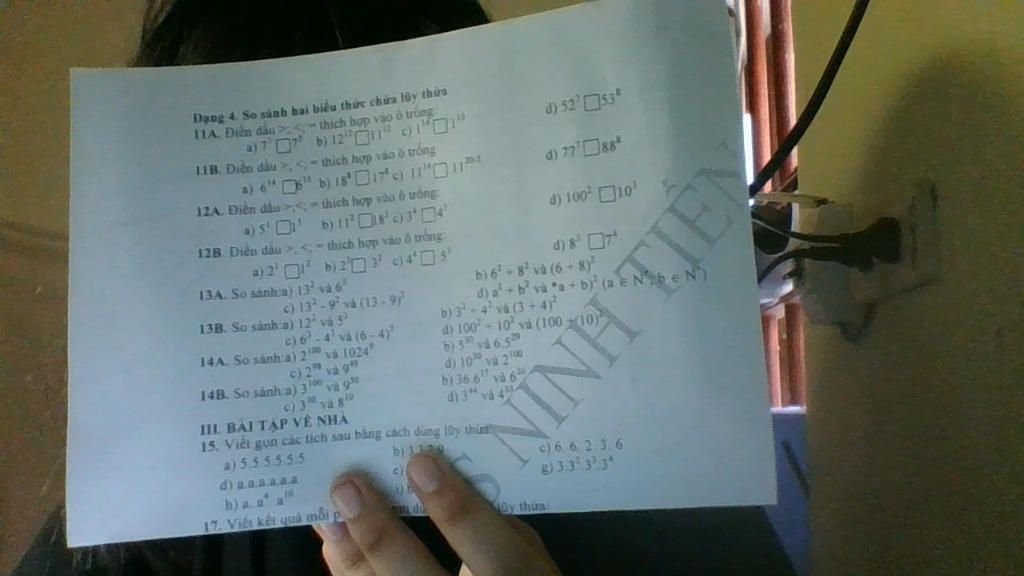 Dạng 4. So sánh hai biểu thức chứa lũy thừa
11A. Điền dấu >; <; = thích hợp vào ô trống:
a) 7⁷ □ 7⁵ b) 12¹² □ 11¹² c) 1¹⁴ □ 1¹³ d) 52⁷ □ 53⁸
11B. Điền dấu >; <; = thích hợp vào ô trống
a) 6¹⁴ □ 6¹⁵ b) 18⁸ □ 17⁴ c) 11¹⁴ □ 11²⁰⁻⁵ d) 77⁷ □ 88⁸
12A. Điền dấu >;<; = thích hợp vào ô trống:
a) 5¹ □ 1⁵ b) 11² □ 18³ c) 3⁴ □ 4³ d) 100² □ 10³
12B. Điền dấu >; <; = thích hợp vào ô trống:
a) 2¹ □ 1² b) 2³ □ 3² c) 4⁴ □ 5³ d) 8³ □ 7⁴
13A. So sánh:a) 13² và 6³ b) 6² + 8² và (6 + 8)²
c) 13² - 9² và (13 - 9)² d) a² + b² và *a + b)² (a ∈ N*; b ∈ N*)
13B. So sánh:a) 12² và 5³ b) 3² + 4² và (3 + 4)²
c) 6³ - 4³ và (6 - 4)³ d) 100² + 10² và (100 + 10)²
14A. So sánh:a) 2¹⁰⁰ và 1024⁹ b) 5³⁰ và 6.5²⁹
c) 2⁹⁸ và 9⁴⁹ d) 10³⁰ và 2¹⁰⁰
14B. So sánh:a) 3¹⁰⁰ và 9⁵⁰ b) 36.6¹⁷ và 6²⁰
c) 3³⁰ và 8¹⁰ d) 3⁴⁴ và 4³³
III. BÀI TẬP VỀ NHÀ
15. Viết gọn các tích sau bằng cách dùng lũy thừa:
a) 5.5.5.5.5.5 b) c) 6. 6. 2. 3. 6
d) a.a.a.a.a.a e) g) 3.3².3³.3⁴
h) a. a⁴. a¹⁰ i)
17. Viết kết quả mỗi lũy thừa:
NINH TIẾN